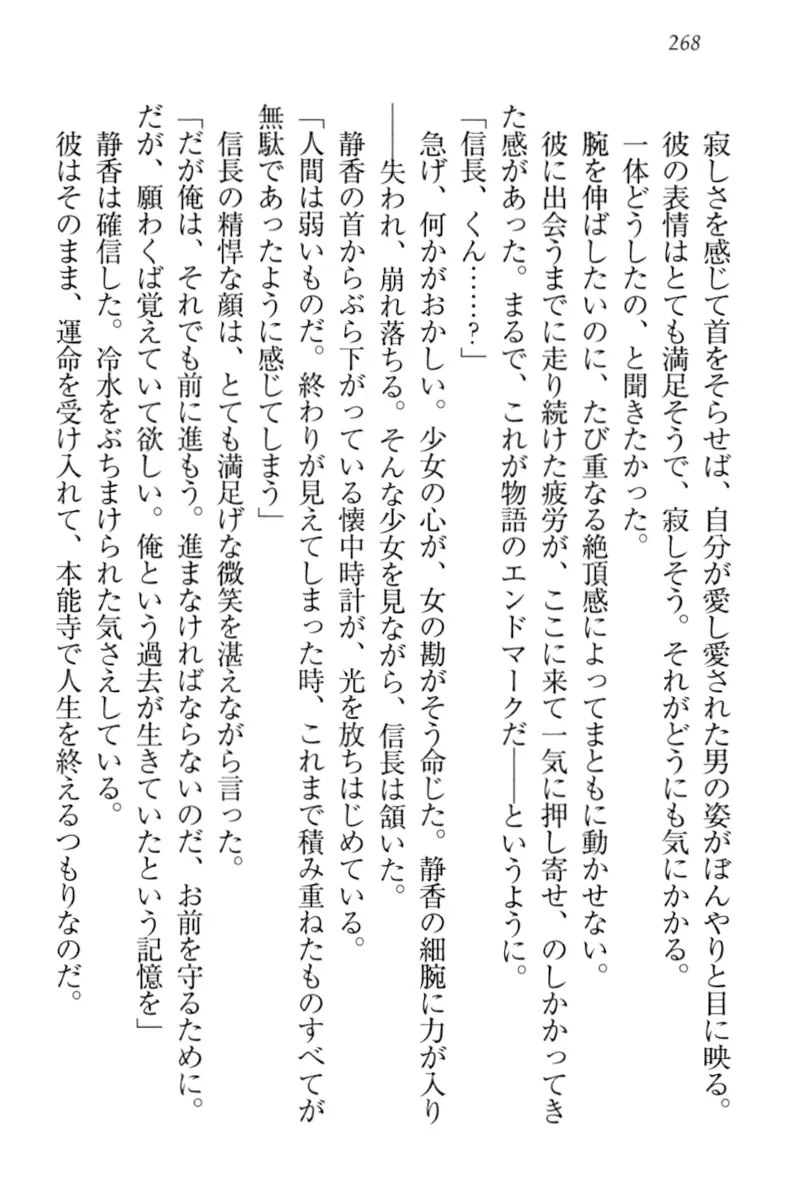 268
寂しさを感じて首をそらせば、自分が愛し愛された男の姿がぼんやりと目に映る。
彼の表情はとても満足そうで、寂しそう。それがどうにも気にかかる。
一体どうしたの、と聞きたかった。
腕を伸ばしたいのに、たび重なる絶頂感によってまともに動かせない。
彼に出会うまでに走り続けた疲労が、ここに来て一気に押し寄せ、のしかかってき
た感があった。まるで、これが物語のエンドマークだ――というように。
「信長、くん……?」
急げ、何かがおかしい。少女の心が、女の勘がそう命じた。静香の細腕に力が入り
――失われ、崩れ落ちる。そんな少女を見ながら、信長は頷いた。
静香の首からぶら下がっている懐中時計が、光を放ちはじめている。
「人間は弱いものだ。終わりが見えてしまった時、これまで積み重ねたものすべてが
無駄であったように感じてしまう」
信長の精悍な顔は、とても満足げな微笑を湛えながら言った。
「だが俺は、それでも前に進もう。進まなければならないのだ、お前を守るために。
だが、願わくば覚えていて欲しい。俺という過去が生きていたという記憶を」
静香は確信した。冷水をぶちまけられた気さえしている。
彼はそのまま、運命を受け入れて、本能寺で人生を終えるつもりなのだ。